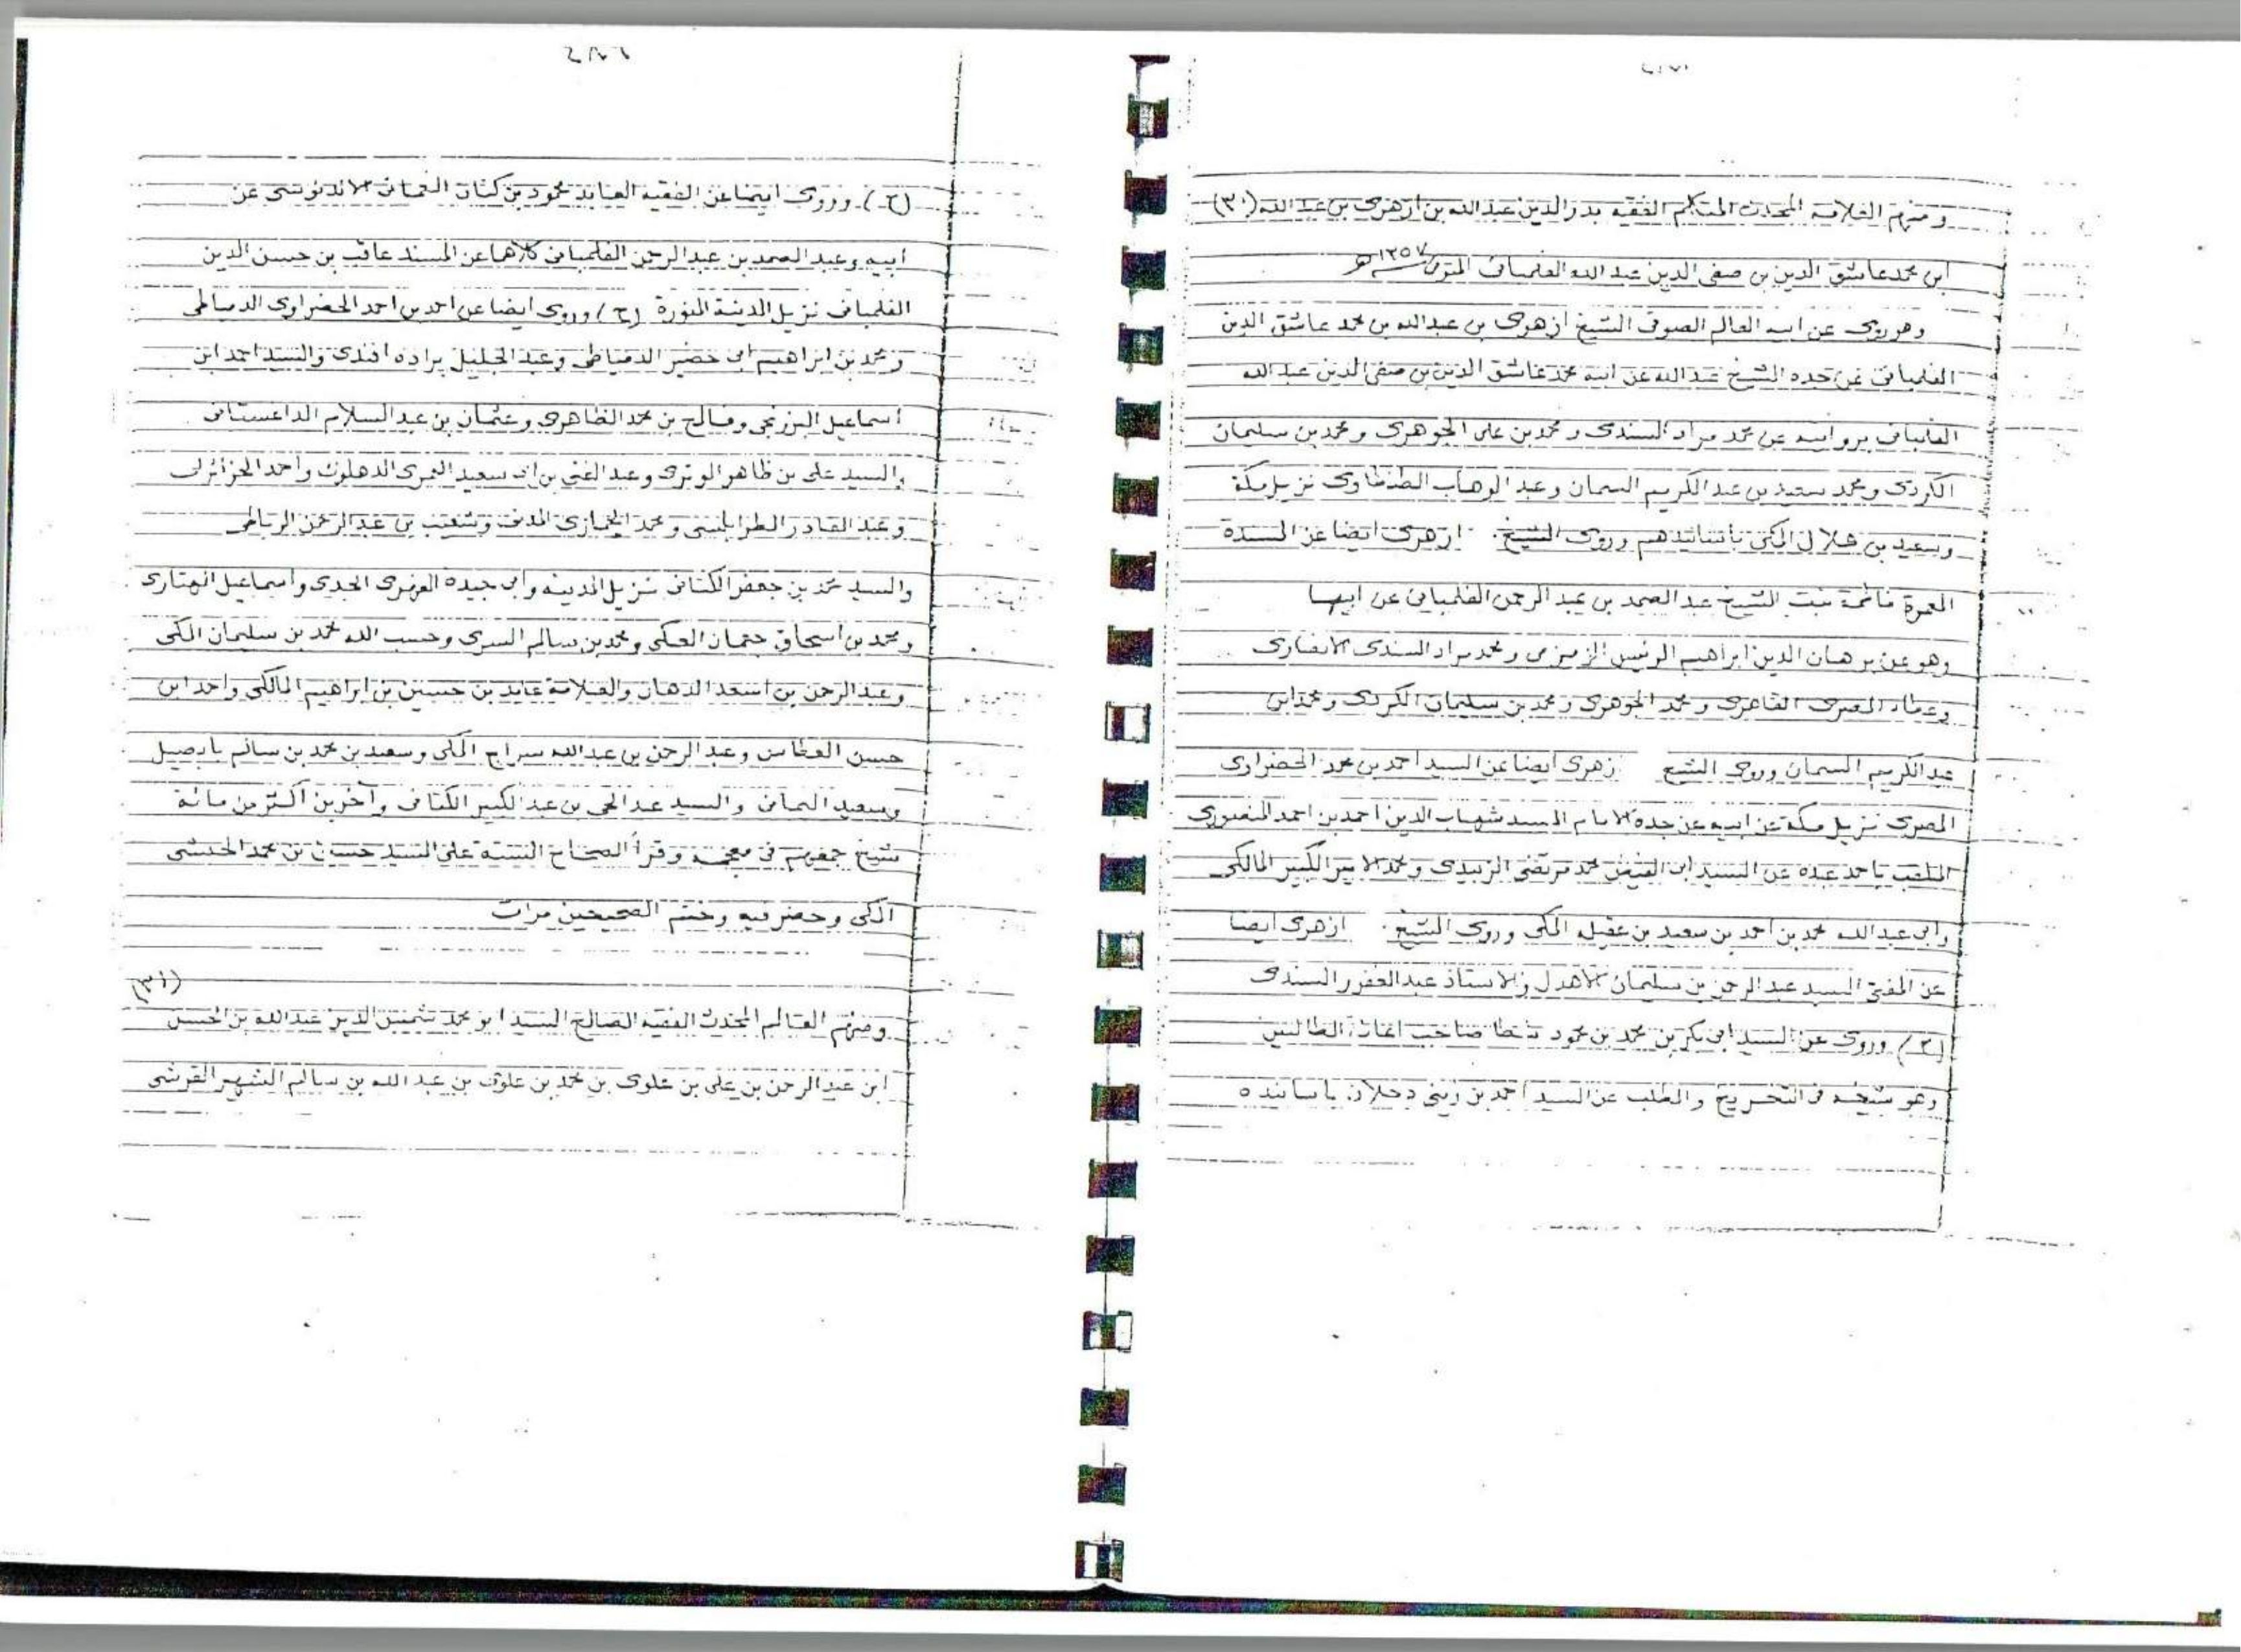 ومنهم العلامة المحدث المتكلم الفقيه بدر الدين عبد الله بن ازهرى بن عبد الله (٣٠)
ابن محمد عاشق الدين بن صفى الدين عبد الله الفلمبانى المتوفى ١٣٥٧ هـ
وهو روى عن ابيه العالم الصوفى الشيخ ازهرى بن عبدالله بن محمد عاشق الدين
الفلمبانى عن جده الشيخ عبدالله عن ابيه محمد عاشق الدين بن صفى الدين عبدالله
الفلمبانى بروايته عن محمد مراد السندى ومحمد بن على الجوهرى ومحمد بن سليمان
الكردى ومحمد سعيد بن عبد الكريم السمان وعبد الوهاب الطنطاوى نزيل مكة
وسعيد بن هلال المكى باسانيدهم وروى الشيخ ازهرى ايضا عن المسندة
المعمرة فاطمة بنت الشيخ عبد الصمد بن عبد الرحمن الفلمبانى عن ابيها
وهو عن برهان الدين ابراهيم الرئيس الزمزمى ومحمد مراد السندى الانصارى
وعطاء المصرى القاهرى ومحمد الجوهرى ومحمد بن سليمان الكردى ومحمد ابن
عبد الكريم السمان وروى الشيخ ازهرى ايضا عن السيد احمد بن محمد الحضراوى
المصرى نزيل مكة عن ابيه عن جده الامام المسند شهاب الدين احمد بن احمد المنصورى
الملقب با حمد عبده عن السيد ابى الفيض محمد مرتضى الزبيدى ومحمد الامير الكبير المالكى
وابى عبدالله محمد بن احمد بن سعيد بن عقيله المكى وروى الشيخ ازهرى ايضا
عن المفتى السيد عبد الرحمن بن سليمان الاهدل والاستاذ عبد الغفور السندى
(ح) وروى عن السيد ابى بكر بن محمد بن محمود شطا صاحب اعانة الطالبين
وهو شيخه فى التخريج والطلب عن السيد احمد بن زينى دحلان باسانيده
(ح) وروى ايضا عن الفقيه العابد محمود بن كنان الاندنوسى عن
ابيه وعبد الصمد بن عبد الرحمن الفلمبانى كلاهما عن المسند عاقب بن حسن الدين
الفلمبانى نزيل المدينة المنورة (ح) وروى ايضا عن احمد بن احمد الحضراوى الدمياطى
ومحمد بن ابراهيم ابى خضير الدمياطى وعبد الجليل براده افندى والسيد احمد ابن
اسماعيل البرزنجى وفالح بن محمد الظاهرى وعثمان بن عبد السلام الداغستانى
والسيد على بن ظاهر الوترى وعبد الغنى بن ابى سعيد العمرى الدهلوى واحمد الجزائرى
وعبد القادر الطرابلسى ومحمد المدنى وشعيب بن عبد الرحمن الرباطى
والسيد محمد بن جعفر الكتانى نزيل المدينه وابى جيده الجدى واسماعيل
ومحمد بن اسحاق جثمان العكى ومحمد بن سالم السرى وحسب الله محمد بن سليمان المكى
وعبد الرحمن بن اسعد الدهان والعلامة عابد بن حسين بن ابراهيم المالكى واحد ابن
حسن العطاس وعبد الرحمن بن عبد الله سراج المكى وسعيد بن محمد بن سالم بابصيل
وسعيد اليمانى والسيد عبد الحى بن عبد الكبير الكتانى وآخرين اكثر من مائة
شيخ جمعهم فى معجمه وقرأ الصحاح الستة على السيد حسين بن محمد الحبشى
المكى وحضر فيه وختم الصحيحين مرات
(٣١)
ومنهم العالم المحدث الفقيه الصالح السيد ابو محمد شمس الدين عبد الله بن الحسن
ابن عبد الرحمن بن على بن علوى بن محمد بن علوى بن عبد الله بن سالم الشهير القرشى